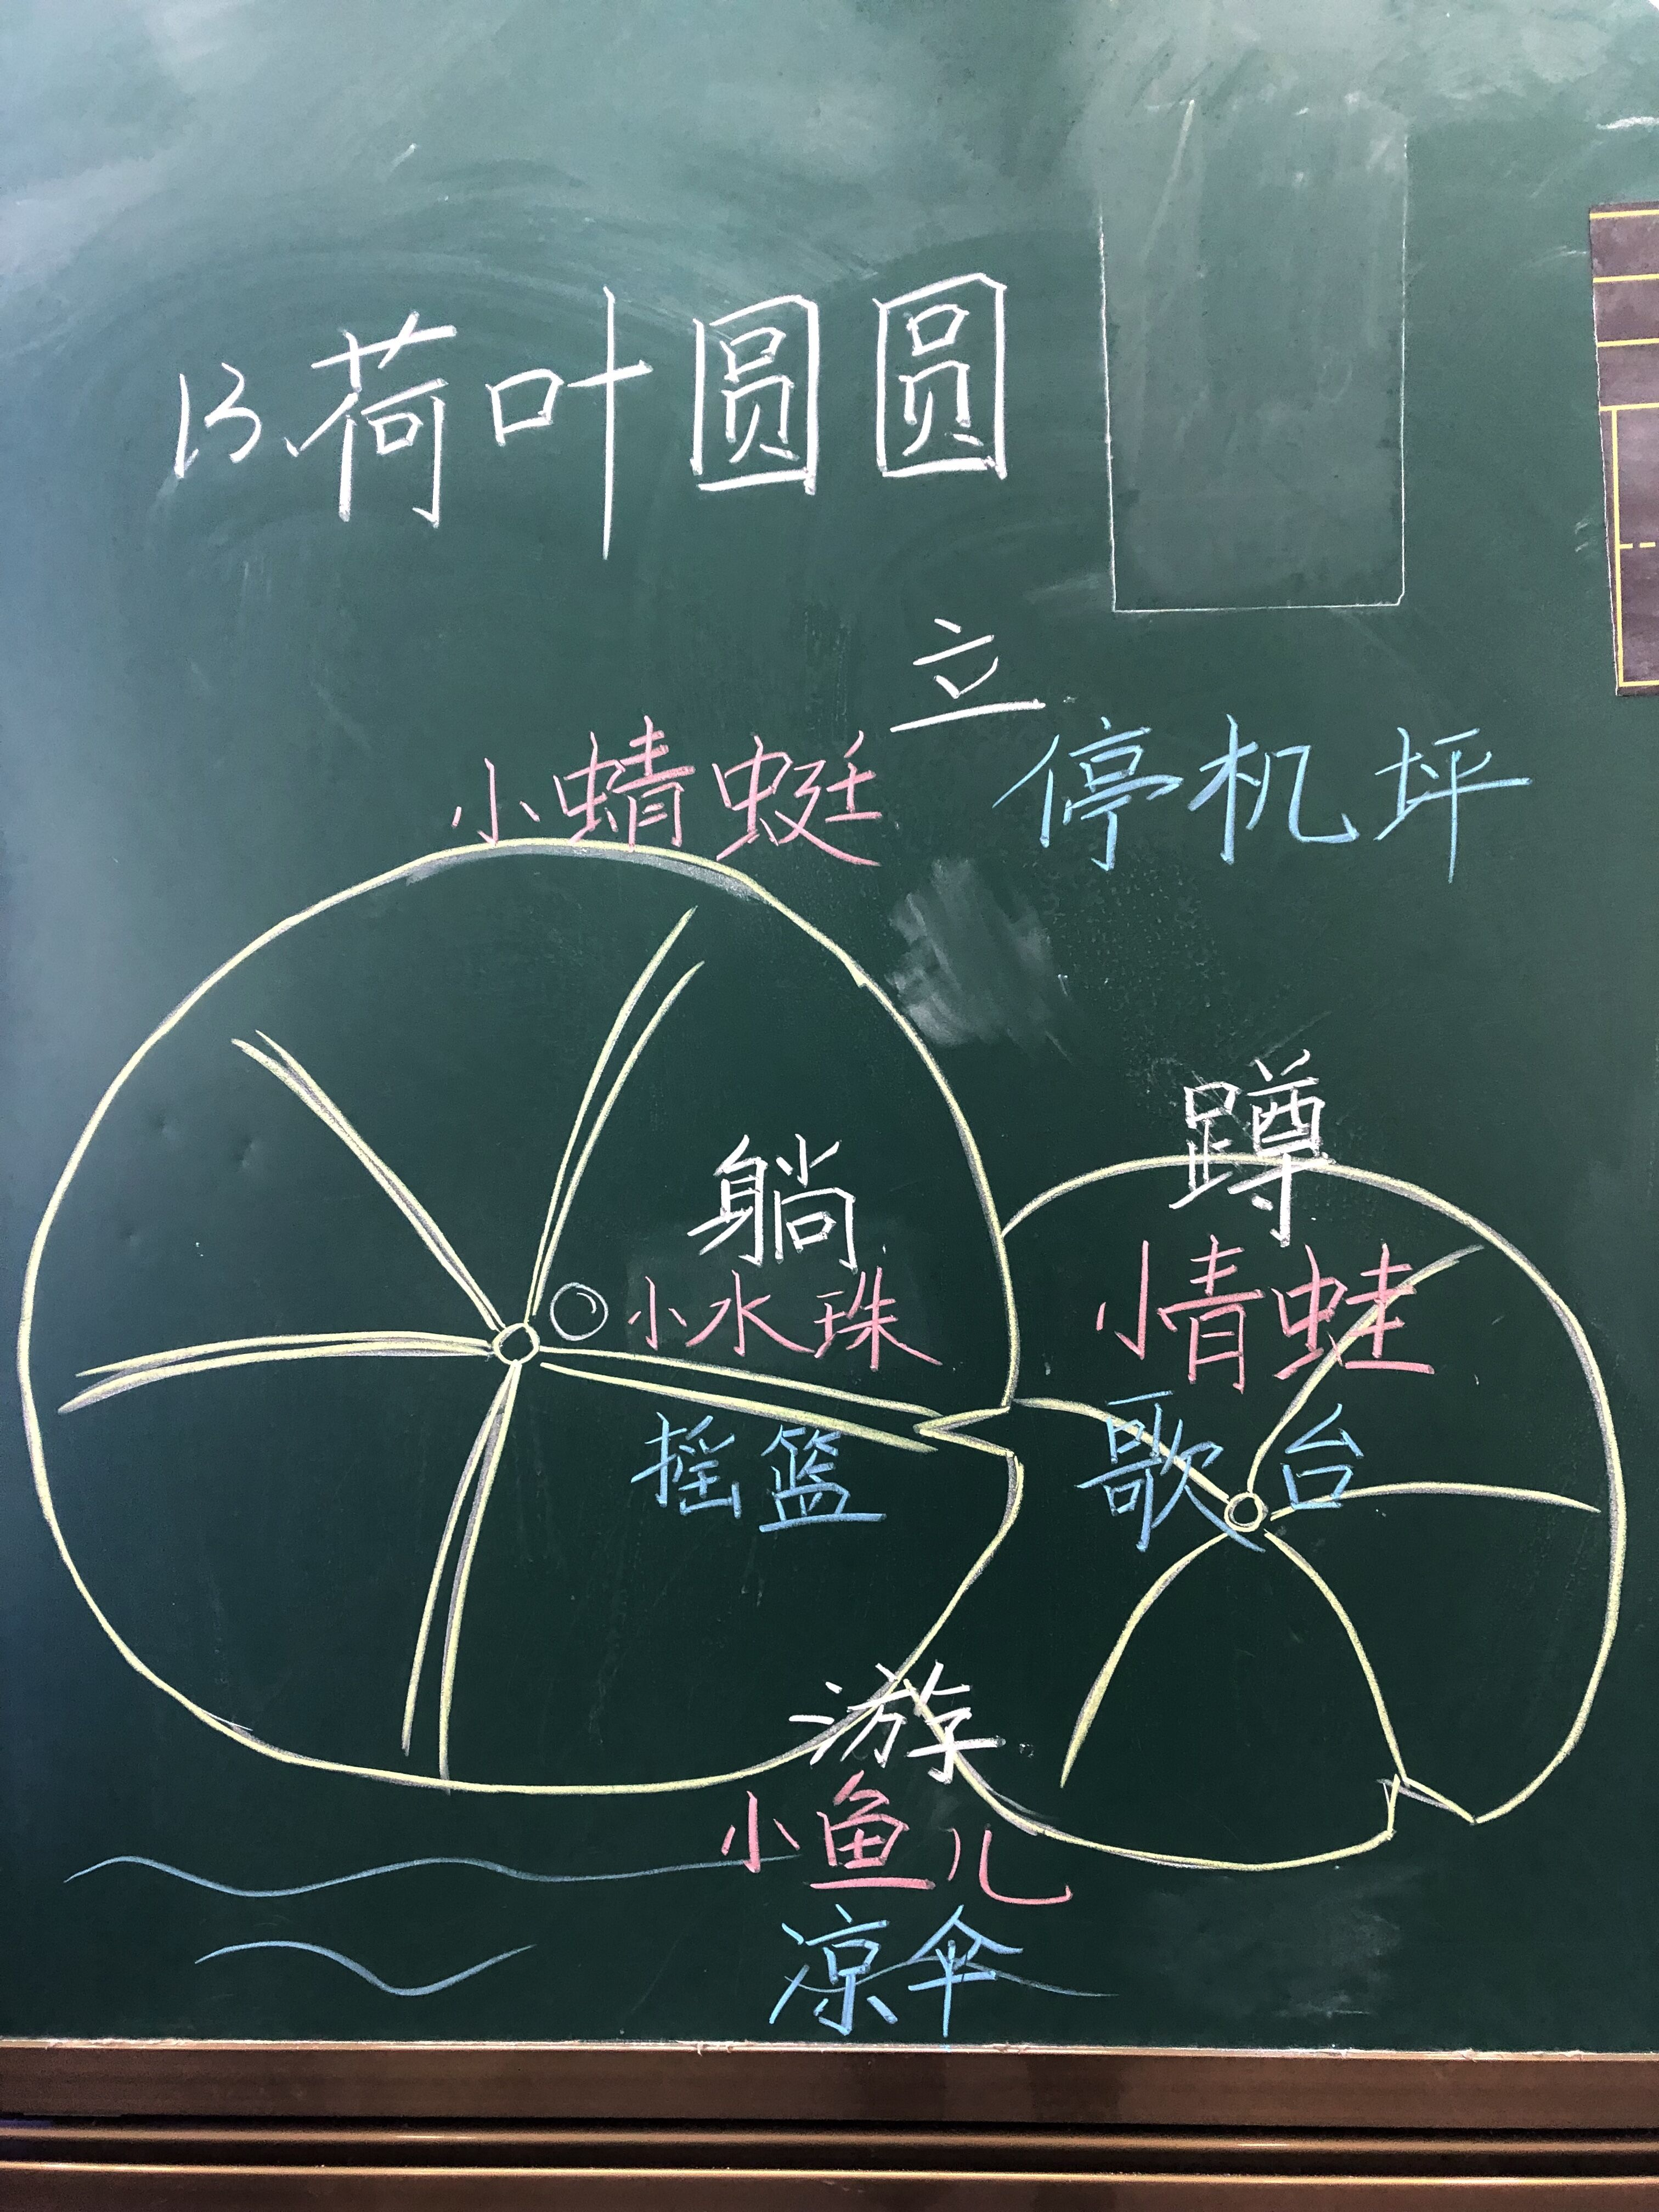 13.荷叶圆圆
立
小蜻蜓 停机坪
躺
小水珠
摇篮
蹲
小青蛙
歌台
游
小鱼儿
凉伞